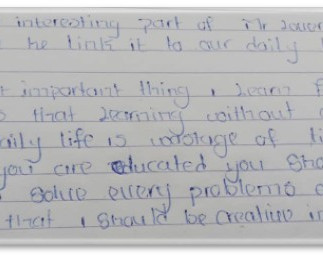 interesting part of Mr
he link it to our daily
t important thing i learn f
that learning without
aily life is wastage of ti
you are educated you sho
solve every problems
that i should be creative in